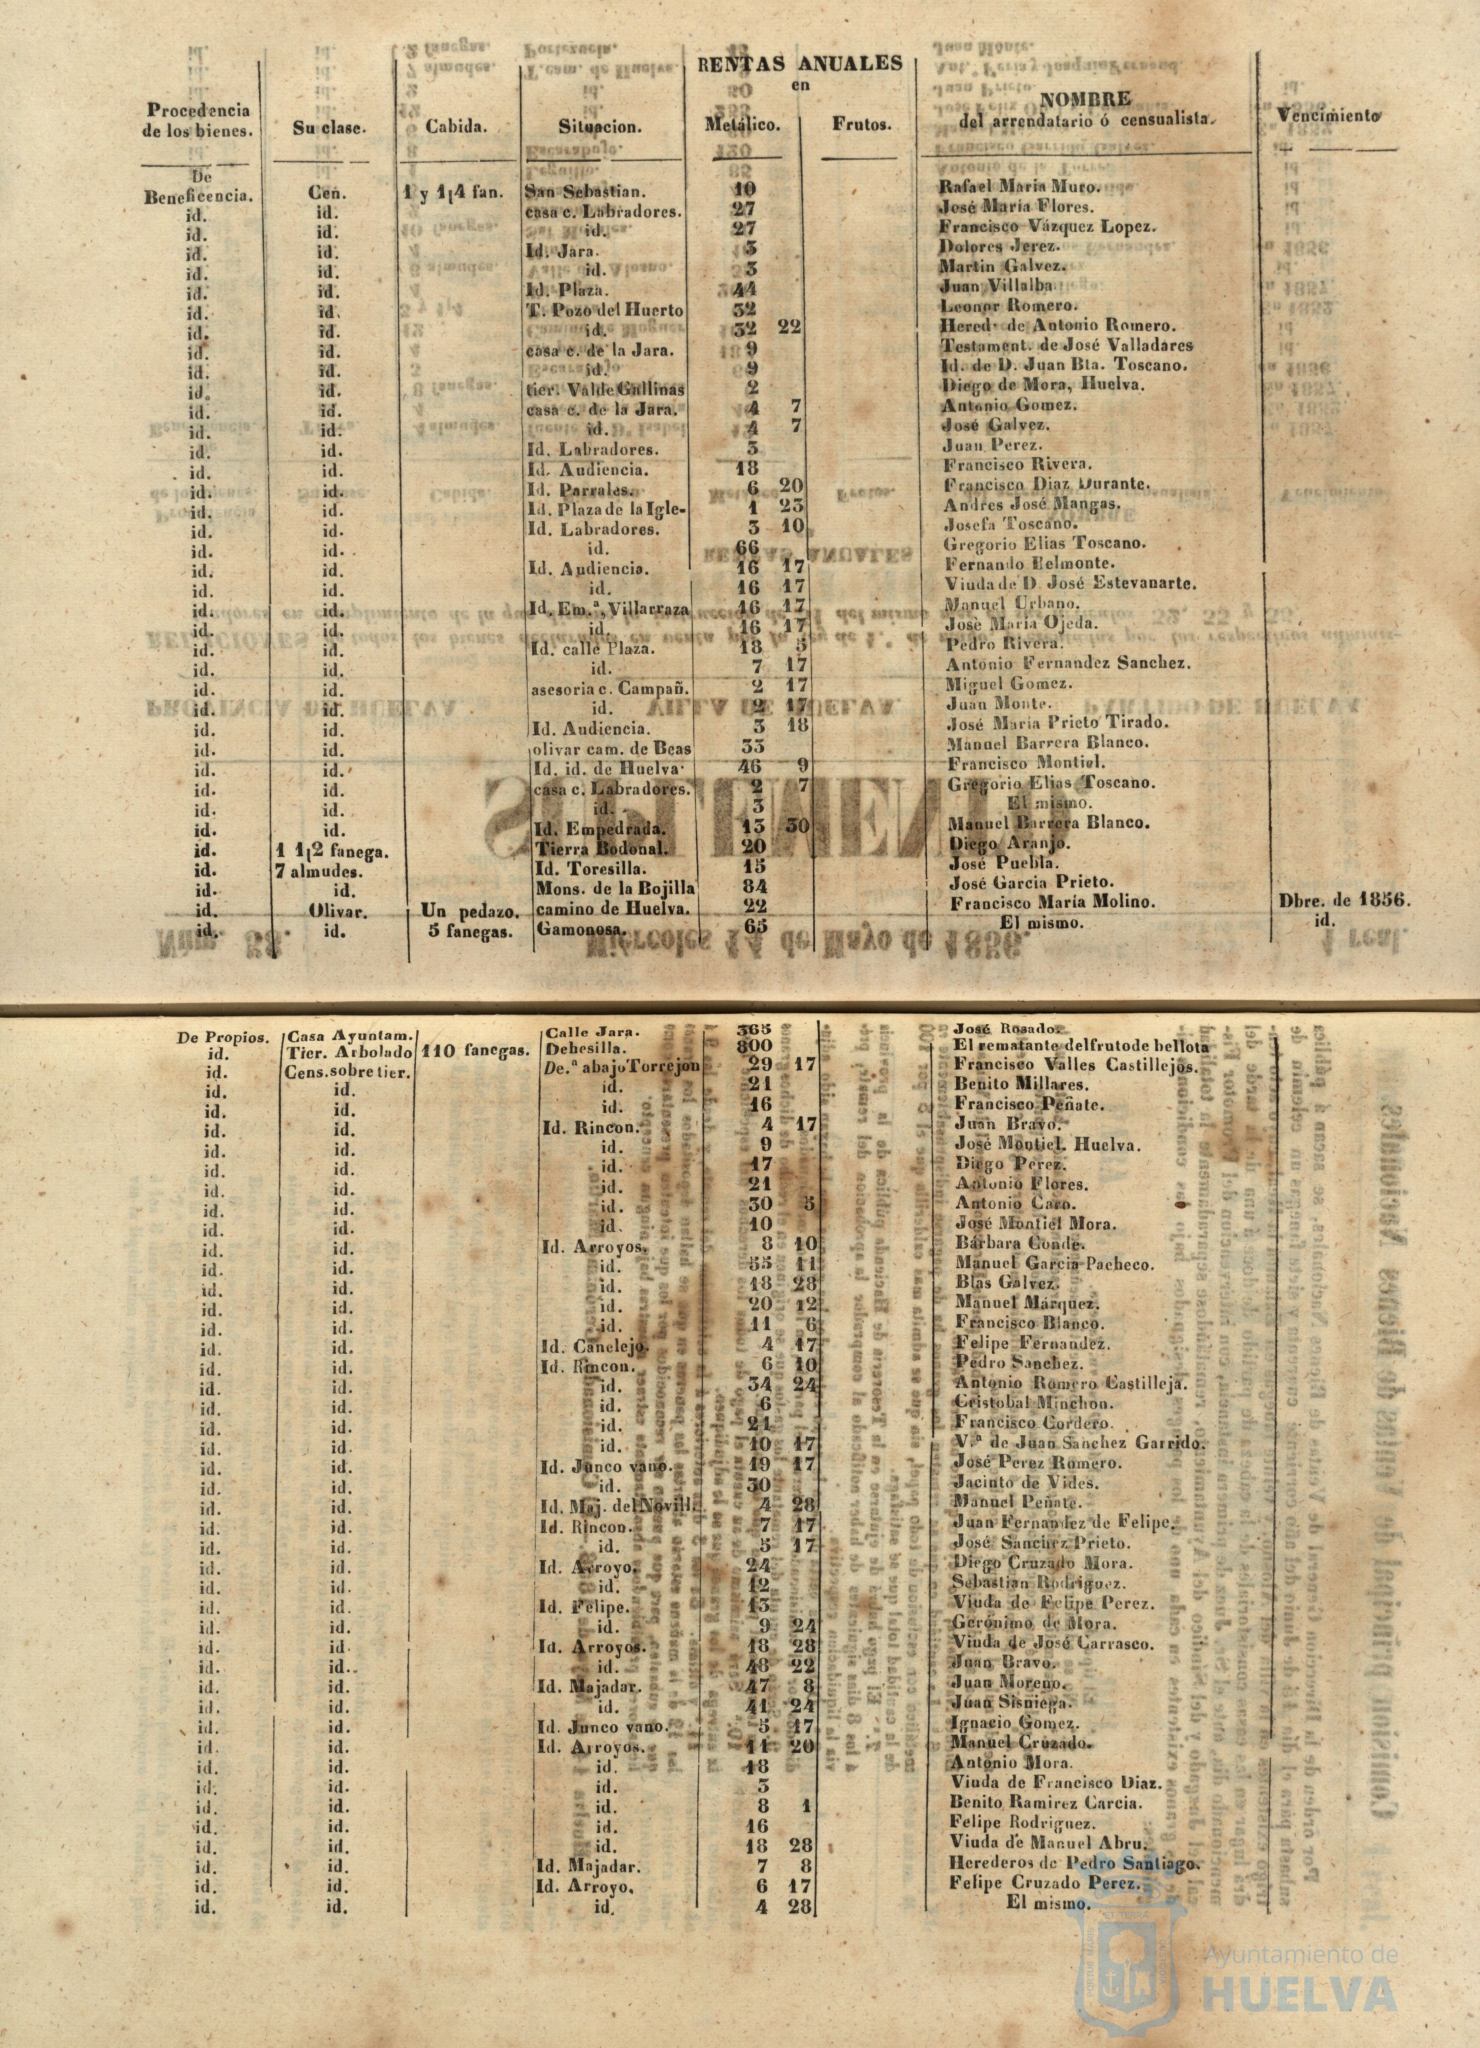 RENTAS ANUALES
en
Procedencia de los bienes. Su clase. Cabida. Situacion. Metálico. Frutos. NOMBRE del arrendatario ó censualista. Vencimiento
De
Beneficencia. Cen. 1 y 1¡4 fan. San Sebastian. 10 Rafael Maria Muro.
id. id. casa c. Labradores. 27 José Maria Flores.
id. id. id. 27 Francisco Vázquez Lopez.
id. id. Id. Jara. 3 Dolores Jerez.
id. id. id. 3 Martin Galvez.
id. id. Id. Plaza. 44 Juan Villalba
id. id. T. Pozo del Huerto 32 Leonor Romero.
id. id. id. 32 22 Hered. de Antonio Romero.
id. id. casa c. de la Jara. 9 Testament. de José Valladares
id. id. id. 9 Id. de D. Juan Bta. Toscano.
id. id. tier. Valde Gallinas 2 Diego de Mora, Huelva.
id. id. casa c. de la Jara. 4 7 Antonio Gomez.
id. id. id. 4 7 José Galvez.
id. id. Id. Labradores. 3 Juan Perez.
id. id. Id. Audiencia. 18 Francisco Rivera.
id. id. Id. Parrales. 6 20 Francisco Diaz Durante.
id. id. Id. Plaza de la Igle- 1 23 Andres José Mangas.
id. id. Id. Labradores. 3 10 Josefa Toscano.
id. id. id. 66 Gregorio Elias Toscano.
id. id. Id. Audiencia. 16 17 Fernando Belmonte.
id. id. id. 16 17 Viuda de D. José Estevanarte.
id. id. Id. Em.ª, Villarraza 16 17 Manuel Urbano.
id. id. id. 16 17 José Maria Ojeda.
id. id. Id. calle Plaza. 18 5 Pedro Rivera.
id. id. id. 7 17 Antonio Fernandez Sanchez.
id. id. asesoria c. Campañ. 2 17 Miguel Gomez.
id. id. id. 2 17 Juan Monte.
id. id. Id. Audiencia. 3 18 José Maria Prieto Tirado.
id. id. olivar cam. de Beas 33 Manuel Barrera Blanco.
id. id. Id. id. de Huelva 46 9 Francisco Montiel.
id. id. casa c. Labradores. 2 7 Gregorio Elias Toscano.
id. id. id. 3 El mismo.
id. id. Id. Empedrada. 13 30 Manuel Barrera Blanco.
id. 1 1¡2 fanega. Tierra Bodonal. 20 Diego Aranjo.
id. 7 almudes. Id. Toresilla. 15 José Puebla.
id. id. Mons. de la Bojilla 84 José Garcia Prieto.
id. Olivar. Un pedazo. camino de Huelva. 22 Francisco María Molino. Dbre. de 1856.
id. id. 5 fanegas. Gamonosa. 65 El mismo. id.
De Propios. Casa Ayuntam. Calle Jara. 365 José Rosado.
id. Tier. Arbolado 110 fanegas. Dehesilla. 800 El rematante del fruto de bellota
id. Cens. sobre tier. De.ª abajo Torrejon 29 17 Francisco Valles Castillejos.
id. id. id. 21 Benito Millares.
id. id. id. 16 Francisco Peñate.
id. id. Id. Rincon. 4 17 Juan Bravo.
id. id. id. 9 José Montiel. Huelva.
id. id. id. 17 Diego Perez.
id. id. id. 21 Antonio Flores.
id. id. id. 30 5 Antonio Caro.
id. id. id. 10 José Montiel Mora.
id. id. Id. Arroyos. 8 10 Bárbara Conde.
id. id. id. 55 11 Manuel Garcia Pacheco.
id. id. id. 18 28 Blas Galvez.
id. id. id. 20 12 Manuel Márquez.
id. id. id. 11 6 Francisco Blanco.
id. id. Id. Canelejo. 4 17 Felipe Fernandez.
id. id. Id. Rincon. 6 10 Pedro Sanchez.
id. id. id. 34 24 Antonio Romero Castilleja.
id. id. id. 6 Cristobal Minchon.
id. id. id. 21 Francisco Cordero.
id. id. id. 10 17 V.ª de Juan Sanchez Garrido.
id. id. Id. Junco vano. 19 17 José Perez Romero.
id. id. id. 30 Jacinto de Vides.
id. id. Id. Maj. del Novill. 4 28 Manuel Peñate.
id. id. Id. Rincon. 7 17 Juan Fernandez de Felipe.
id. id. id. 5 17 José Sanchez Prieto.
id. id. Id. Arroyo. 24 Diego Cruzado Mora.
id. id. id. 12 Sebastian Rodriguez.
id. id. Id. Felipe. 13 Viuda de Felipe Perez.
id. id. id. 9 24 Gerónimo de Mora.
id. id. Id. Arroyos. 18 28 Viuda de José Carrasco.
id. id. id. 48 22 Juan Bravo.
id. id. Id. Majadar. 47 8 Juan Moreno.
id. id. id. 41 24 Juan Sisniega.
id. id. Id. Junco vano. 5 17 Ignacio Gomez.
id. id. Id. Arroyos. 11 20 Manuel Cruzado.
id. id. id. 18 Antonio Mora.
id. id. id. 3 Viuda de Francisco Diaz.
id. id. id. 8 1 Benito Ramirez Garcia.
id. id. id. 16 Felipe Rodriguez.
id. id. id. 18 28 Viuda de Manuel Abru.
id. id. Id. Majadar. 7 8 Herederos de Pedro Santiago.
id. id. Id. Arroyo. 6 17 Felipe Cruzado Perez.
id. id. id. 4 28 El mismo.
Ayuntamiento de
HUELVA